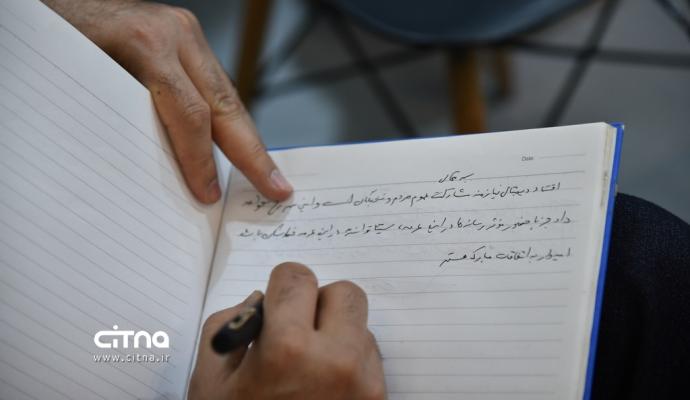 Date:
به کمال
اقتصاد دیجیتال نیازمند مشارکت عموم مردم و نخبگان است و این رخ نخواهد
داد جز با حضور مؤثر رسانه‌ها در این عرصه، سیتنا توانسته در این عرصه خط‌شکن باشد
امیدوار به اتفاقات مبارک هستم
CITNA
www.citna.ir